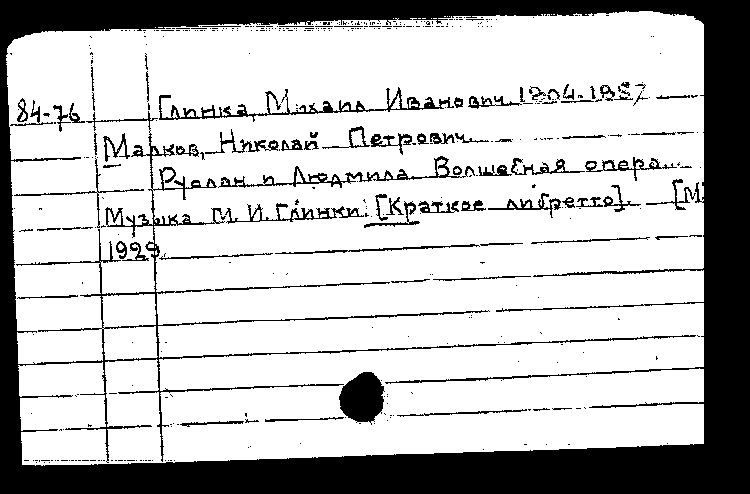 84-76 Глинка, Михаил Иванович. 1804-1857
Малков, Николай Петрович.
Руслан и Людмила. Волшебная опера...
Музыка М. И. Глинки. [Краткое либретто]. [М.
1929